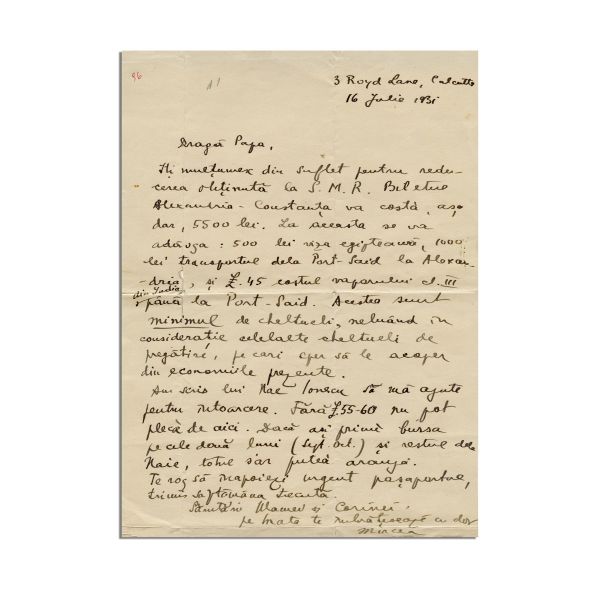 96
A1
3 Royd Lane, Calcutta
16 Julie 1931
Dragă Papa,
Iți mulțumex din suflet pentru redu-
cerea obținută la S. M. R. Biletul
Alexandria - Constanța va costă, așa
dar, 5500 lei. La aceasta se va
adăuga : 500 lei viza egipteană, 1000
lei transportul dela Port-Said la Alexan-
dria, și £. 45 costul vaporului cl. III
din India
până la Port-Said. Acestea sunt
minimul de cheltueli, neluând în
considerație celelalte cheltueli de
pregătire, pe cari sper să le acoper
din economiile prezente.
Am scris lui Nae Ionescu să mă ajute
pentru întoarcere. Fără £55-60 nu pot
plecă de aici. Dacă aș primi bursa
pe cele două luni (Sept. Oct.) și restul dela
Naie, totul s'ar putea aranja.
Te rog să înapoiezi urgent pașaportul,
trimis săptămâna trecută.
Sănătăți Mamei și Corinei,
pe tine te îmbrățișează cu dor
Mircea